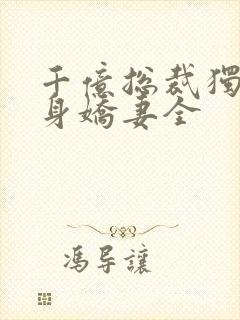 千億总裁獨
身嬌妻全
馮导讓